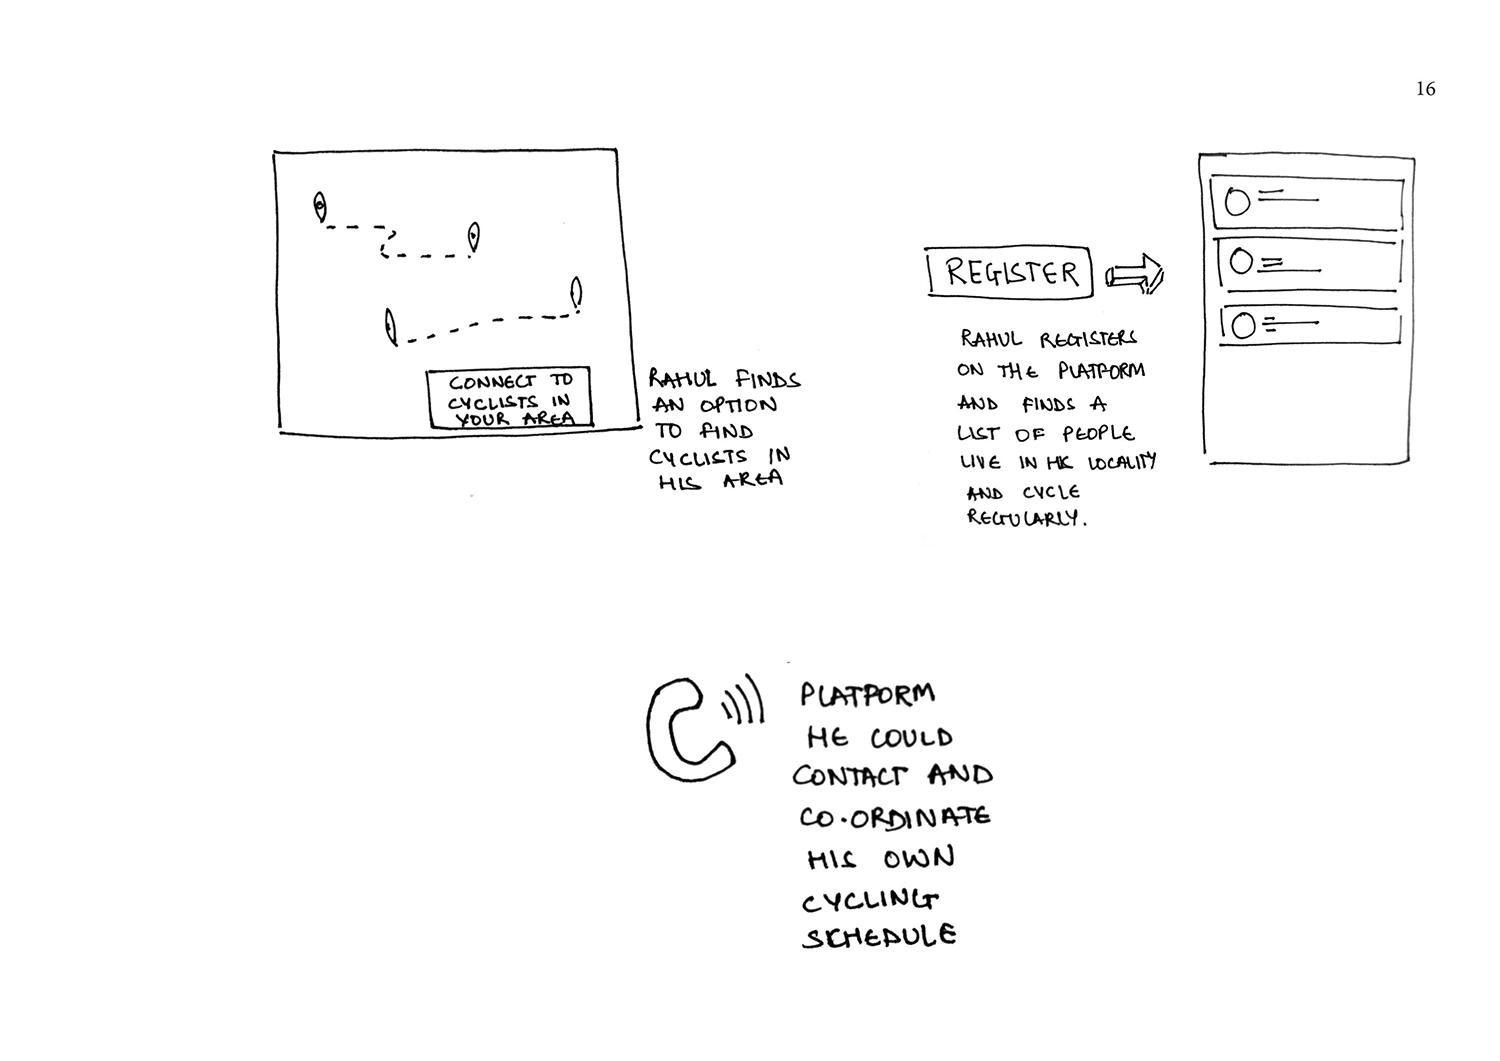 16
CONNECT TO
CYCLISTS IN
YOUR AREA
RAHUL FINDS
AN OPTION
TO FIND
CYCLISTS IN
HIS AREA
REGISTER
RAHUL REGISTERS
ON THE PLATFORM
AND FINDS A
LIST OF PEOPLE
LIVE IN HIS LOCALITY
AND CYCLE
REGULARLY.
PLATFORM
HE COULD
CONTACT AND
CO-ORDINATE
HIS OWN
CYCLING
SCHEDULE